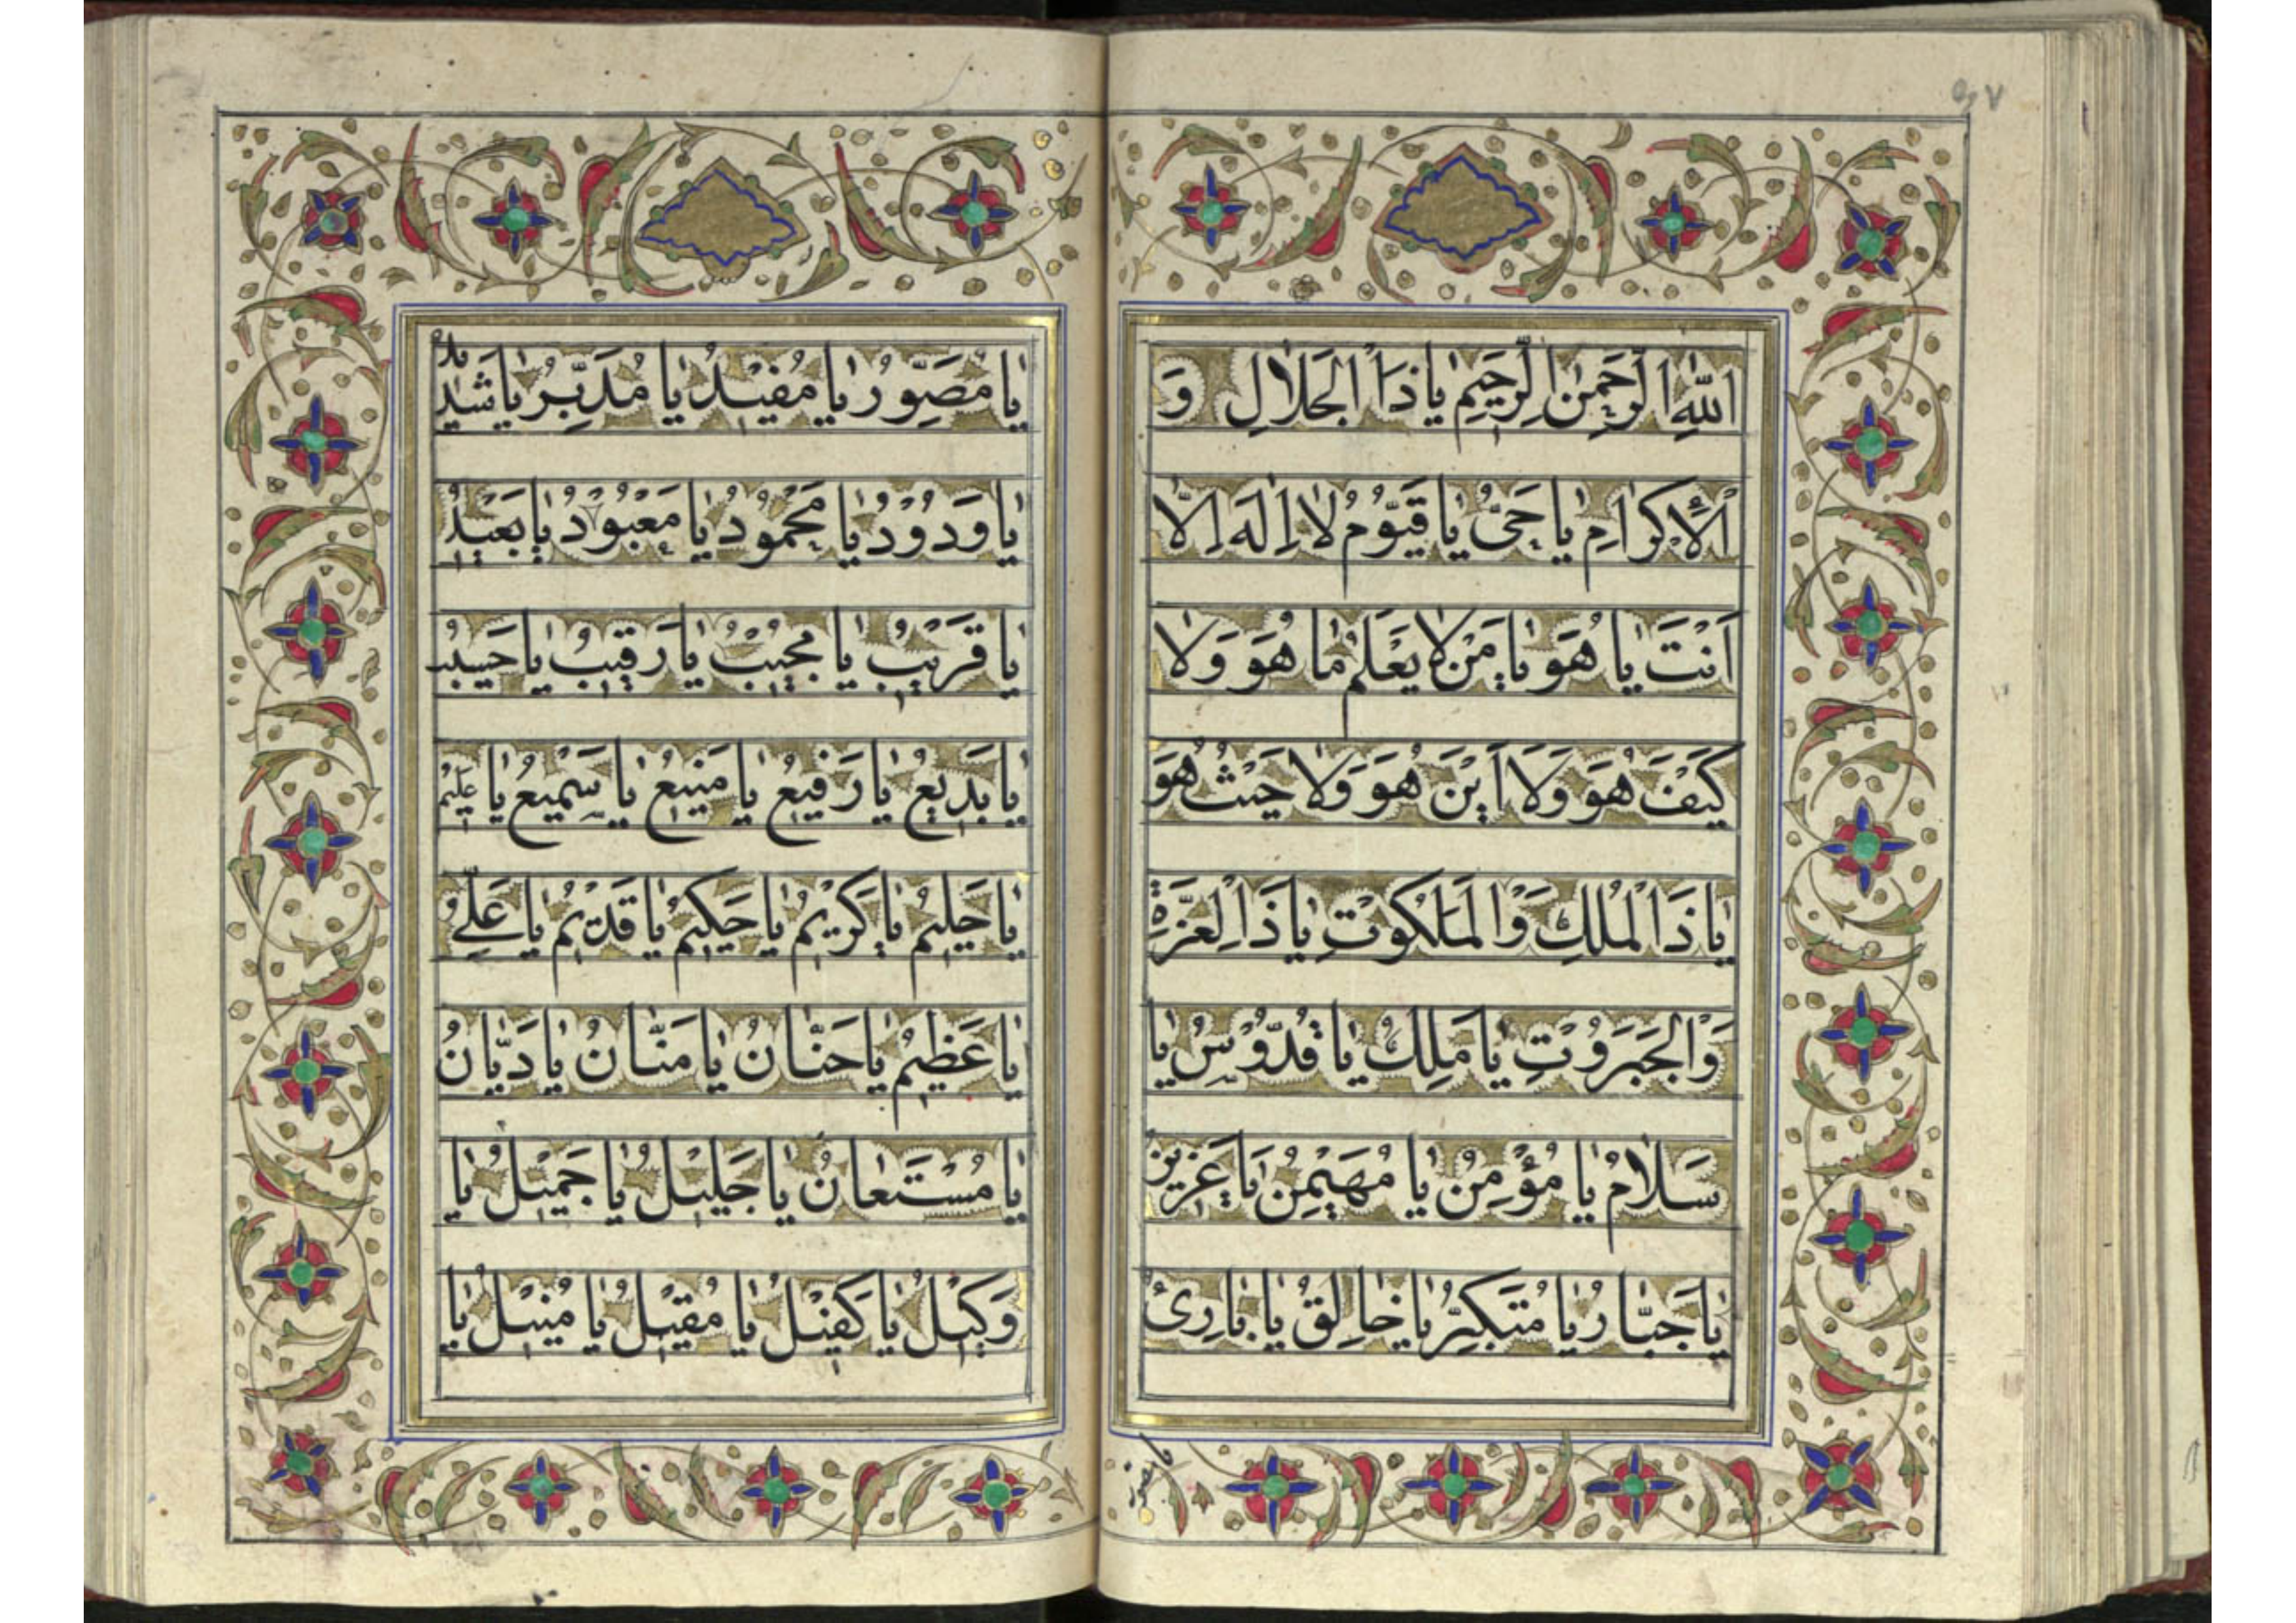 ٩٧
اللهِ الرَّحْمٰنِ الرَّحِيمِ يٰا ذَا الْجَلٰالِ وَ
الْأِكْرٰامِ يٰا حَىُّ يٰا قَيُّومُ لٰا اِلٰهَ اِلّٰا
اَنْتَ يٰا هُوَ يٰا مَنْ لٰا يَعْلَمُ مٰا هُوَ وَلٰا
كَيْفَ هُوَ وَلٰا اَيْنَ هُوَ وَلٰا حَيْثُ هُوَ
يٰا ذَا الْمُلْكِ وَالْمَلَكُوتِ يٰا ذَا الْعِزَّةِ
وَالْجَبَرُوْتِ يٰا مَلِكُ يٰا قُدُّوْسُ يٰا
سَلٰامُ يٰا مُؤْمِنُ يٰا مُهَيْمِنُ يٰا عَزِيزُ
يٰا جَبّٰارُ يٰا مُتَكَبِّرُ يٰا خٰالِقُ يٰا بٰارِئُ
يا مصور
يٰا مُصَوِّرُ يٰا مُفيْدُ يٰا مُدَبِّرُ يٰا شَديدُ
يٰا وَدُوْدُ يٰا مَحْمُوْدُ يٰا مَعْبُوْدُ يٰا بَعيْدُ
يٰا قَرِيْبُ يٰا مُجيْبُ يٰا رَقيبُ يٰا حَسيبُ
يٰا بَديْعُ يٰا رَفيْعُ يٰا مَنيعُ يٰا سَميْعُ يٰا عَليْمُ
يٰا حَليْمُ يٰا كَرِيْمُ يٰا حَكيْمُ يٰا قَديْمُ يٰا عَلِىُّ
يٰا عَظيْمُ يٰا حَنّٰانُ يٰا مَنّٰانُ يٰا دَيّٰانُ
يٰا مُسْتَعٰانُ يٰا جَليْلُ يٰا جَميْلُ يٰا
وَكيْلُ يٰا كَفيْلُ يٰا مُقيْلُ يٰا مُنيْلُ يٰا